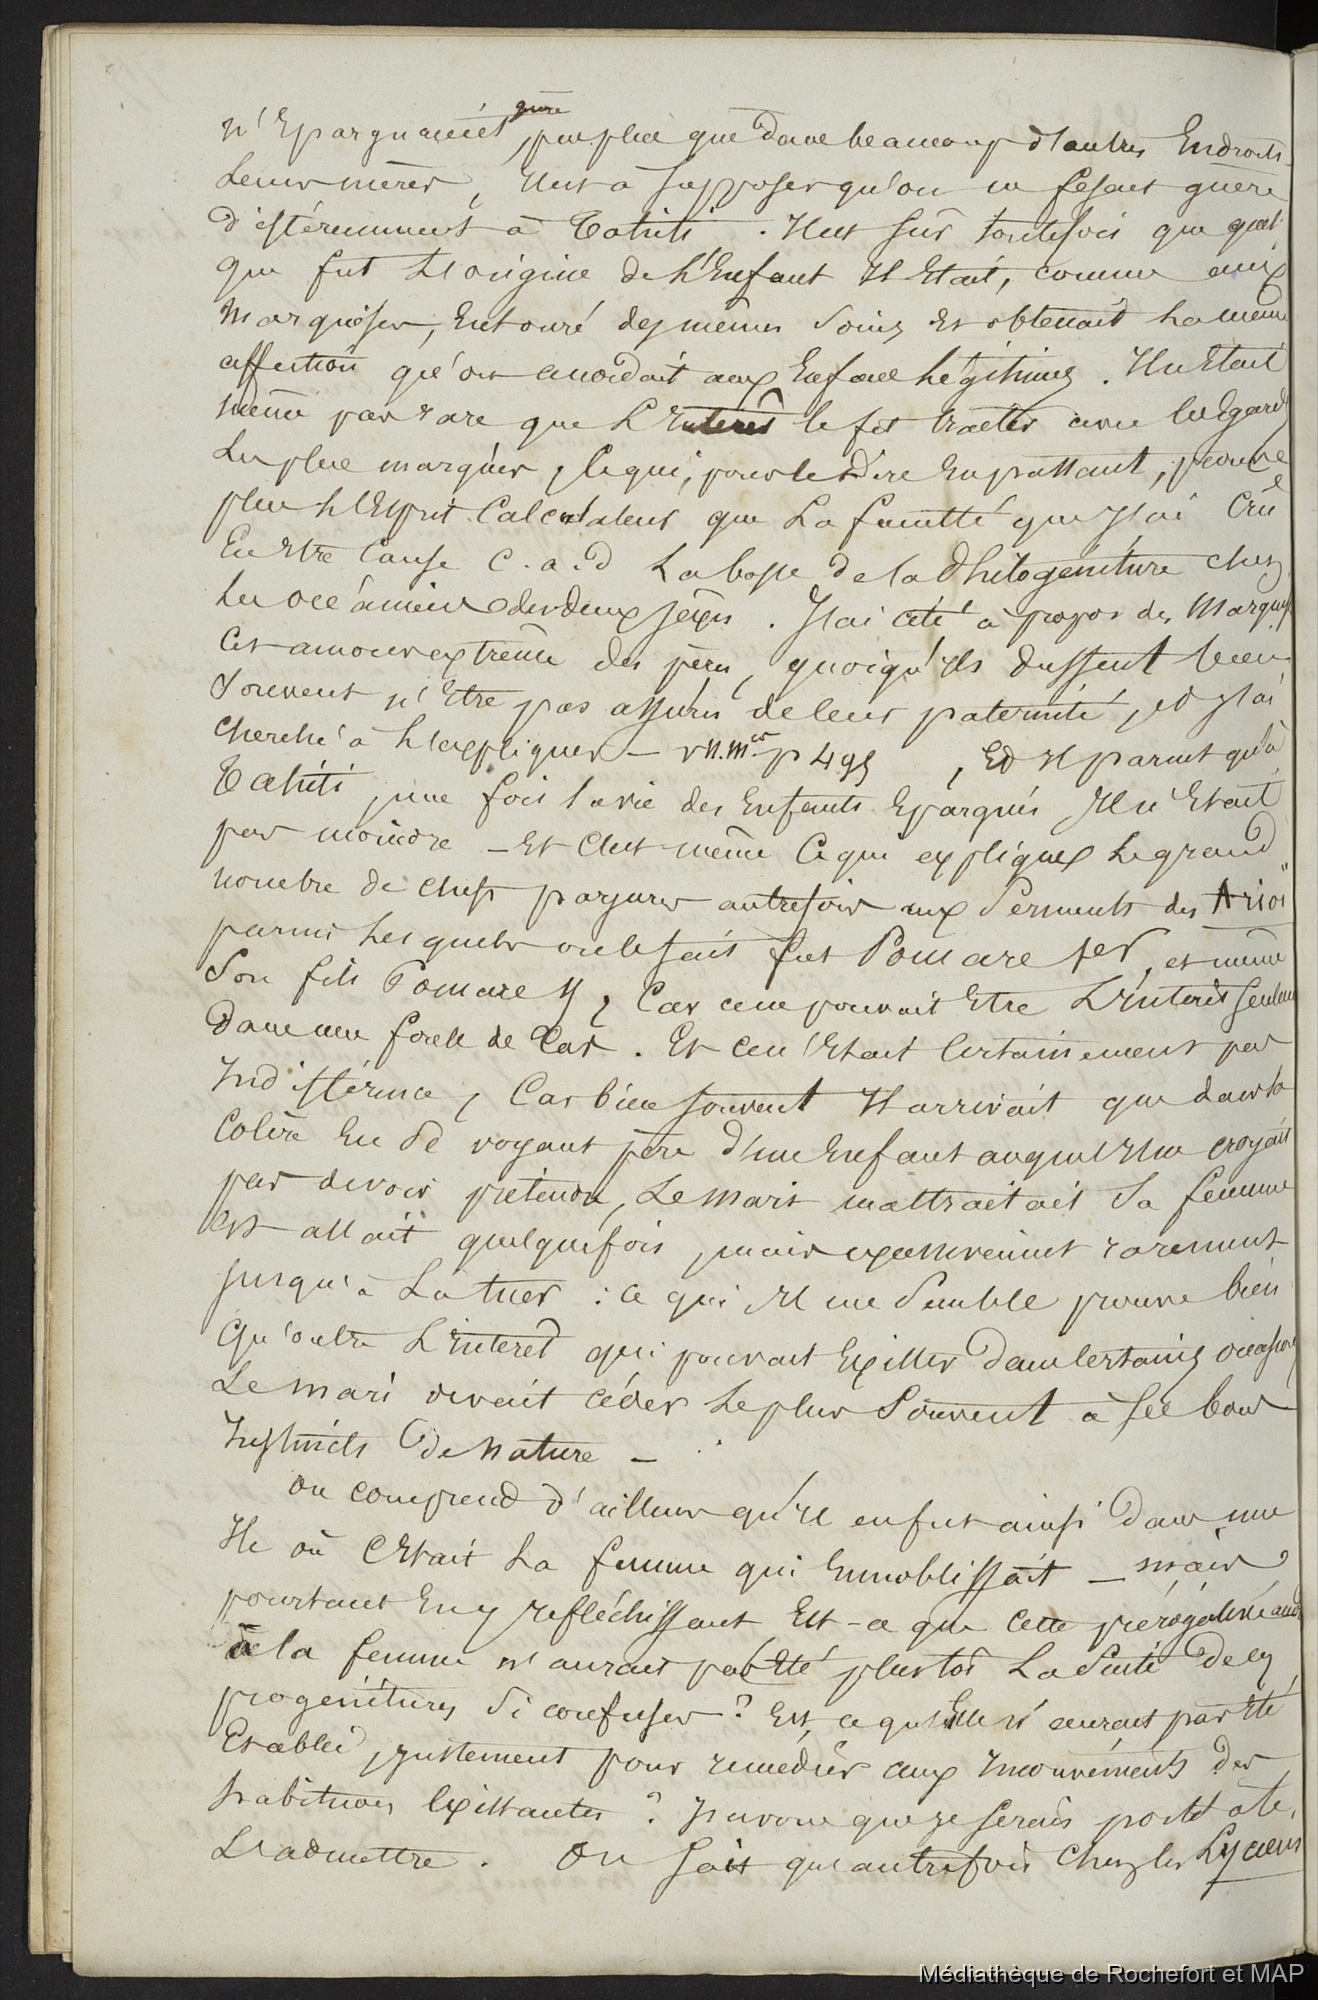 guère
n'Epargnaient, pas plus que dans beaucoup d'autres Endroits
Leurs mères, Il est à supposer qu'on ne fesait guère
différemment à Tahiti. Il est sûr toutefois que quel
que fut L'origine de L'Enfant Il Etait, comme aux
Marquises, Entouré des mêmes Soins Et obtenait La même
affection qu'on accordait aux Enfans Légitimes. Il n'Etait
même pas rare que L'Interêt le fit traiter avec les Egards
Les plus marqués, Ce qui, pour le dire En passant, prouve
plus L'Esprit Calculateur que La faculté que J'ai Crû
En Etre Cause c.a.d La bosse de la Philogeniture chez
Les océaniens des deux sexes. J'ai cité à propos des Marquises
Cet amour extrême des pères, quoiqu'Ils dussent bien
Souvent n'Etre pas assurés de leur paternité, et J'ai
Cherché à L'expliquer — v n. m. p 495, Et Il parait qu'à
Tahiti, une fois la vie des Enfants Epargnés Il n'Etait
pas moindre — Et C'est même Ce qui explique Le grand
nombre de chefs parjures autrefois aux Serments des Arioi
parmi Lesquels on le sait fut Pomare 1er, et même
Son fils Pomare II, Car ce ne pouvait Etre L'Interêt seulement
Dans une foule de Cas. Et ce n'Etait Certainement pas
Indifférence, Car bien souvent Il arrivait que dans sa
Colère En Se voyant père d'un Enfant auquel Il ne croyait
pas devoir prétendre, Le Mari maltraitait Sa femme
Et allait quelquefois, mais excessivement rarement
jusqu'à La tuer : Ce qui Il me Semble prouve bien
Qu'outre L'Interêt qui pouvait Exister Dans Certaines occasions
Le mari devait céder Le plus Souvent à ses bons
Instincts de Nature —
On comprend d'ailleurs qu'Il en fut ainsi Dans une
Ile où C'Etait La femme qui Ennoblissait — mais
pourtant En y refléchissant Est-ce que cette prérogative
à la femme n'aurait pas Eté plustot La Suite de ces
progenitures Si confuses ? Est ce qu'Elle n'aurait pas Eté
Etablie, justement pour remédier aux Inconvénients Des
habitudes Existantes ? J'avoue que je serais porté à
L'admettre. On Sait qu'autrefois Chez les Lyciens
Médiathèque de Rochefort et MAP